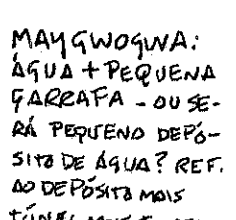 MAYGWOGWA:
ÁGUA + PEQUENA
GARRAFA - OU SE-
RÁ PEQUENO DEPÓ-
SITO DE ÁGUA? REF.
AO DEPÓSITO MAIS